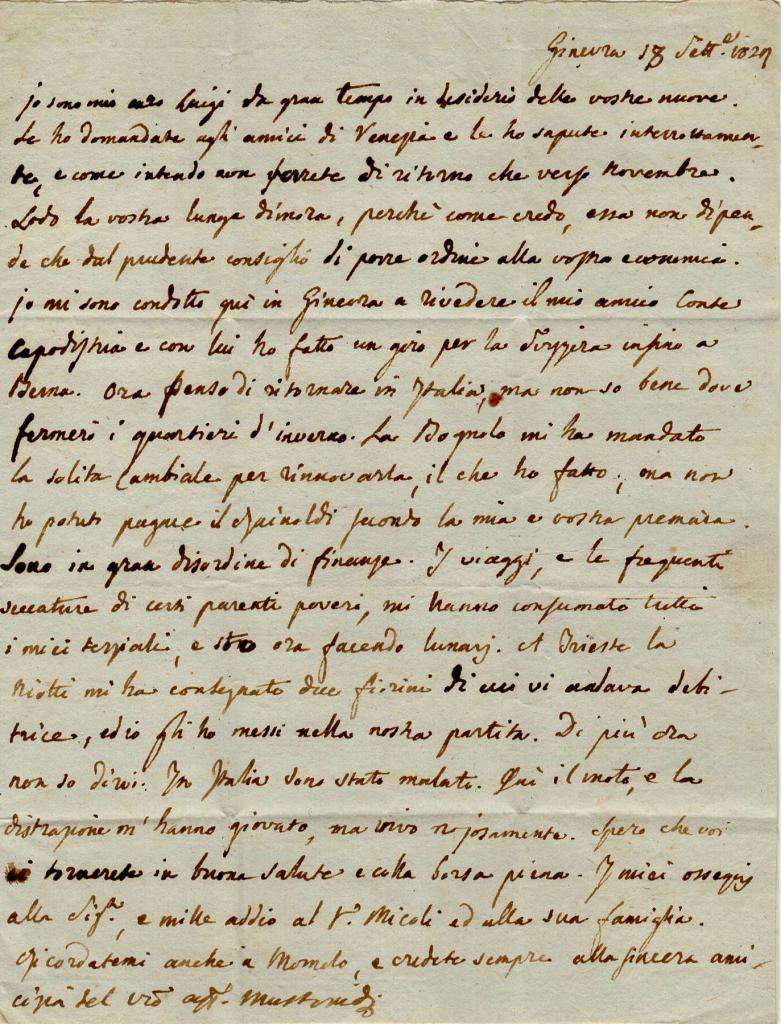 Ginevra 18 Sett.e 182
Io sono mio caro Luigi da gran tempo in desiderio delle vostre nuove.
Le ho domandate agli amici di Venezia e le ho sapute interrottamen-
te, e come intendo non sarete di ritorno che verso Novembre.
Lodo la vostra lunga dimora, perchè come credo, essa non dipen-
de che dal prudente consiglio di porre ordine alla vostra economia.
Io mi sono condotto quì in Ginevra a rivedere il mio amico Conte
Capodistria e con lui ho fatto un giro per la Svizzera insino a
Berna. Ora penso di ritornare in Italia, ma non so bene dove
fermerò i quartieri d'inverno. La Bognolo mi ha mandato
la solita Cambiale per rinnovarla, il che ho fatto; ma non
ho potuto pagare il Rainoldi secondo la mia e vostra premura.
Sono in gran disordine di finanze. I viaggi, e le frequenti
seccature di certi parenti poveri, mi hanno consumato tutti
i miei, e sto ora facendo lunarj. A Trieste la
mi ha consegnato due fiorini di cui vi andava debi-
trice, ed io gli ho messi nella nostra partita. Di più ora
non so dirvi. In Italia sono stato malato. Quì il moto, e la
distrazione m'hanno giovato, ma vivo nojosamente. Spero che voi
tornerete in buona salute e colla borsa piena. I miei ossequj
alla Sig.a, e mille addio al S.r Micoli ed alla sua famiglia.
Ricordatemi anche a Momolo, e credete sempre alla sincera ami-
cizia del vro aff. Mustoxidi